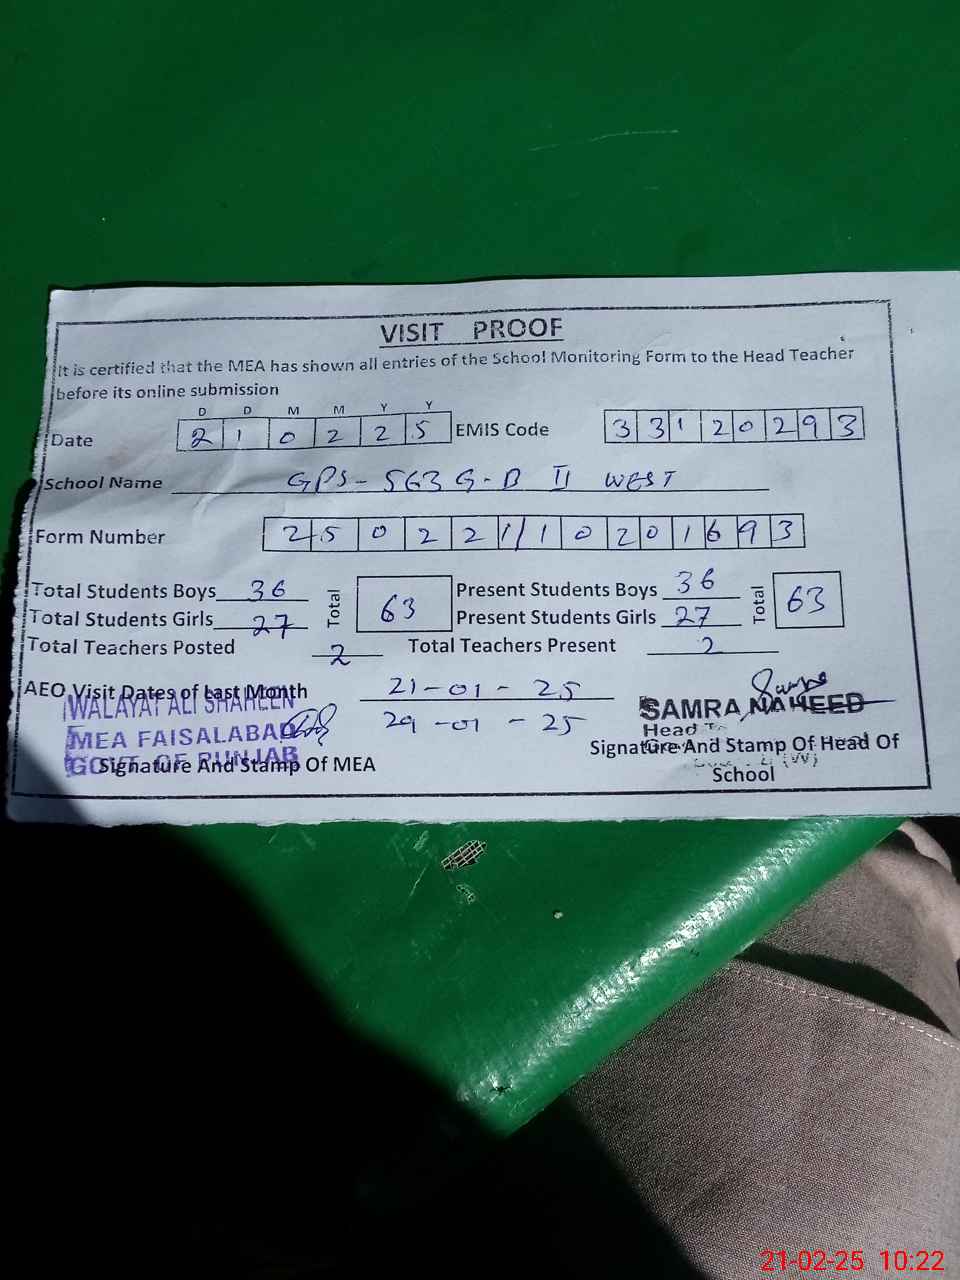 VISIT PROOF
It is certified that the MEA has shown all entries of the School Monitoring Form to the Head Teacher
before its online submission
D D M M Y Y
Date 2 1 0 2 2 5 EMIS Code 3 3 1 2 0 2 9 3
School Name GPS-563 G-B II WEST
Form Number 2 5 0 2 2 1/1 0 2 0 1 6 9 3
Total Students Boys 36 Total 63 Present Students Boys 36 Total 63
Total Students Girls 27 Present Students Girls 27
Total Teachers Posted 2 Total Teachers Present 2
AEO Visit Dates of Last Month 21-01-25
29-01-25
WALAYAT ALI SHAHEEN
MEA FAISALABAD
GOVT. OF PUNJAB
Signature And Stamp Of MEA
SAMRA NAHEED
Head
Signature And Stamp Of Head Of
School
21-02-25 10:22